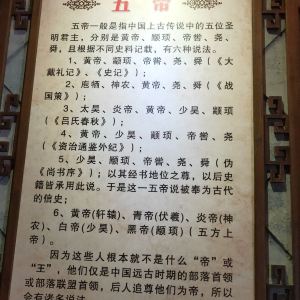 五 帝
五帝一般是指中国上古传说中的五位圣
明君主，分别是黄帝、颛顼、帝喾、尧、
舜，且根据不同史料记载，有六种说法。
1、黄帝、颛顼、帝喾、尧、舜（《大
戴礼记》、《史记》）；
2、庖牺、神农、黄帝、尧、舜（《战
国策》）；
3、太昊、炎帝、黄帝、少昊、颛顼
（《吕氏春秋》）；
4、黄帝、少昊、颛顼、帝喾、尧
（《资治通鉴外纪》）；
5、少昊、颛顼、帝喾、尧、舜（伪
《尚书序》）；以其经书地位之尊，以后史
籍皆承用此说。于是这一五帝说被奉为古代
的信史；
6、黄帝(轩辕)、青帝(伏羲)、炎帝(神
农)、白帝(少昊)、黑帝(颛顼)（五方上
帝）。
因为这些人根本就不是什么“帝”或
“王”，他们仅是中国远古时期的部落首领
或部落联盟首领，后人追尊他们为帝，所以
会有诸多说法